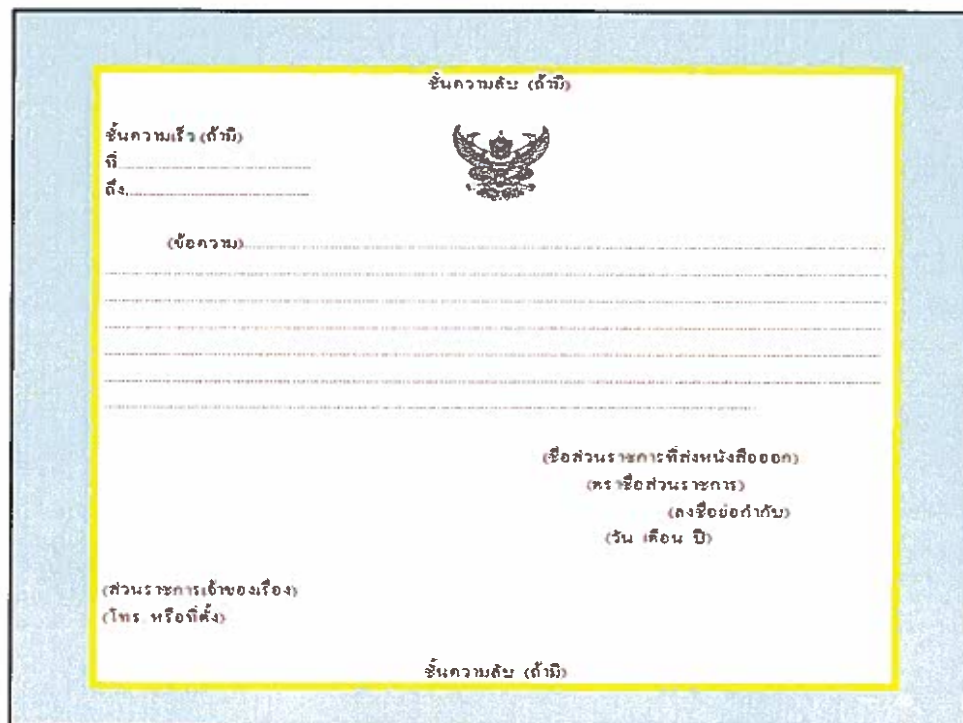 ชั้นความลับ (ถ้ามี)
ชั้นความเร็ว (ถ้ามี)
ที่
ถึง
(ข้อความ)
(ชื่อส่วนราชการที่ส่งหนังสือออก)
(ตราชื่อส่วนราชการ)
(ลงชื่อย่อกำกับ)
(วัน เดือน ปี)
(ส่วนราชการเจ้าของเรื่อง)
(โทร หรือที่ตั้ง)
ชั้นความลับ (ถ้ามี)